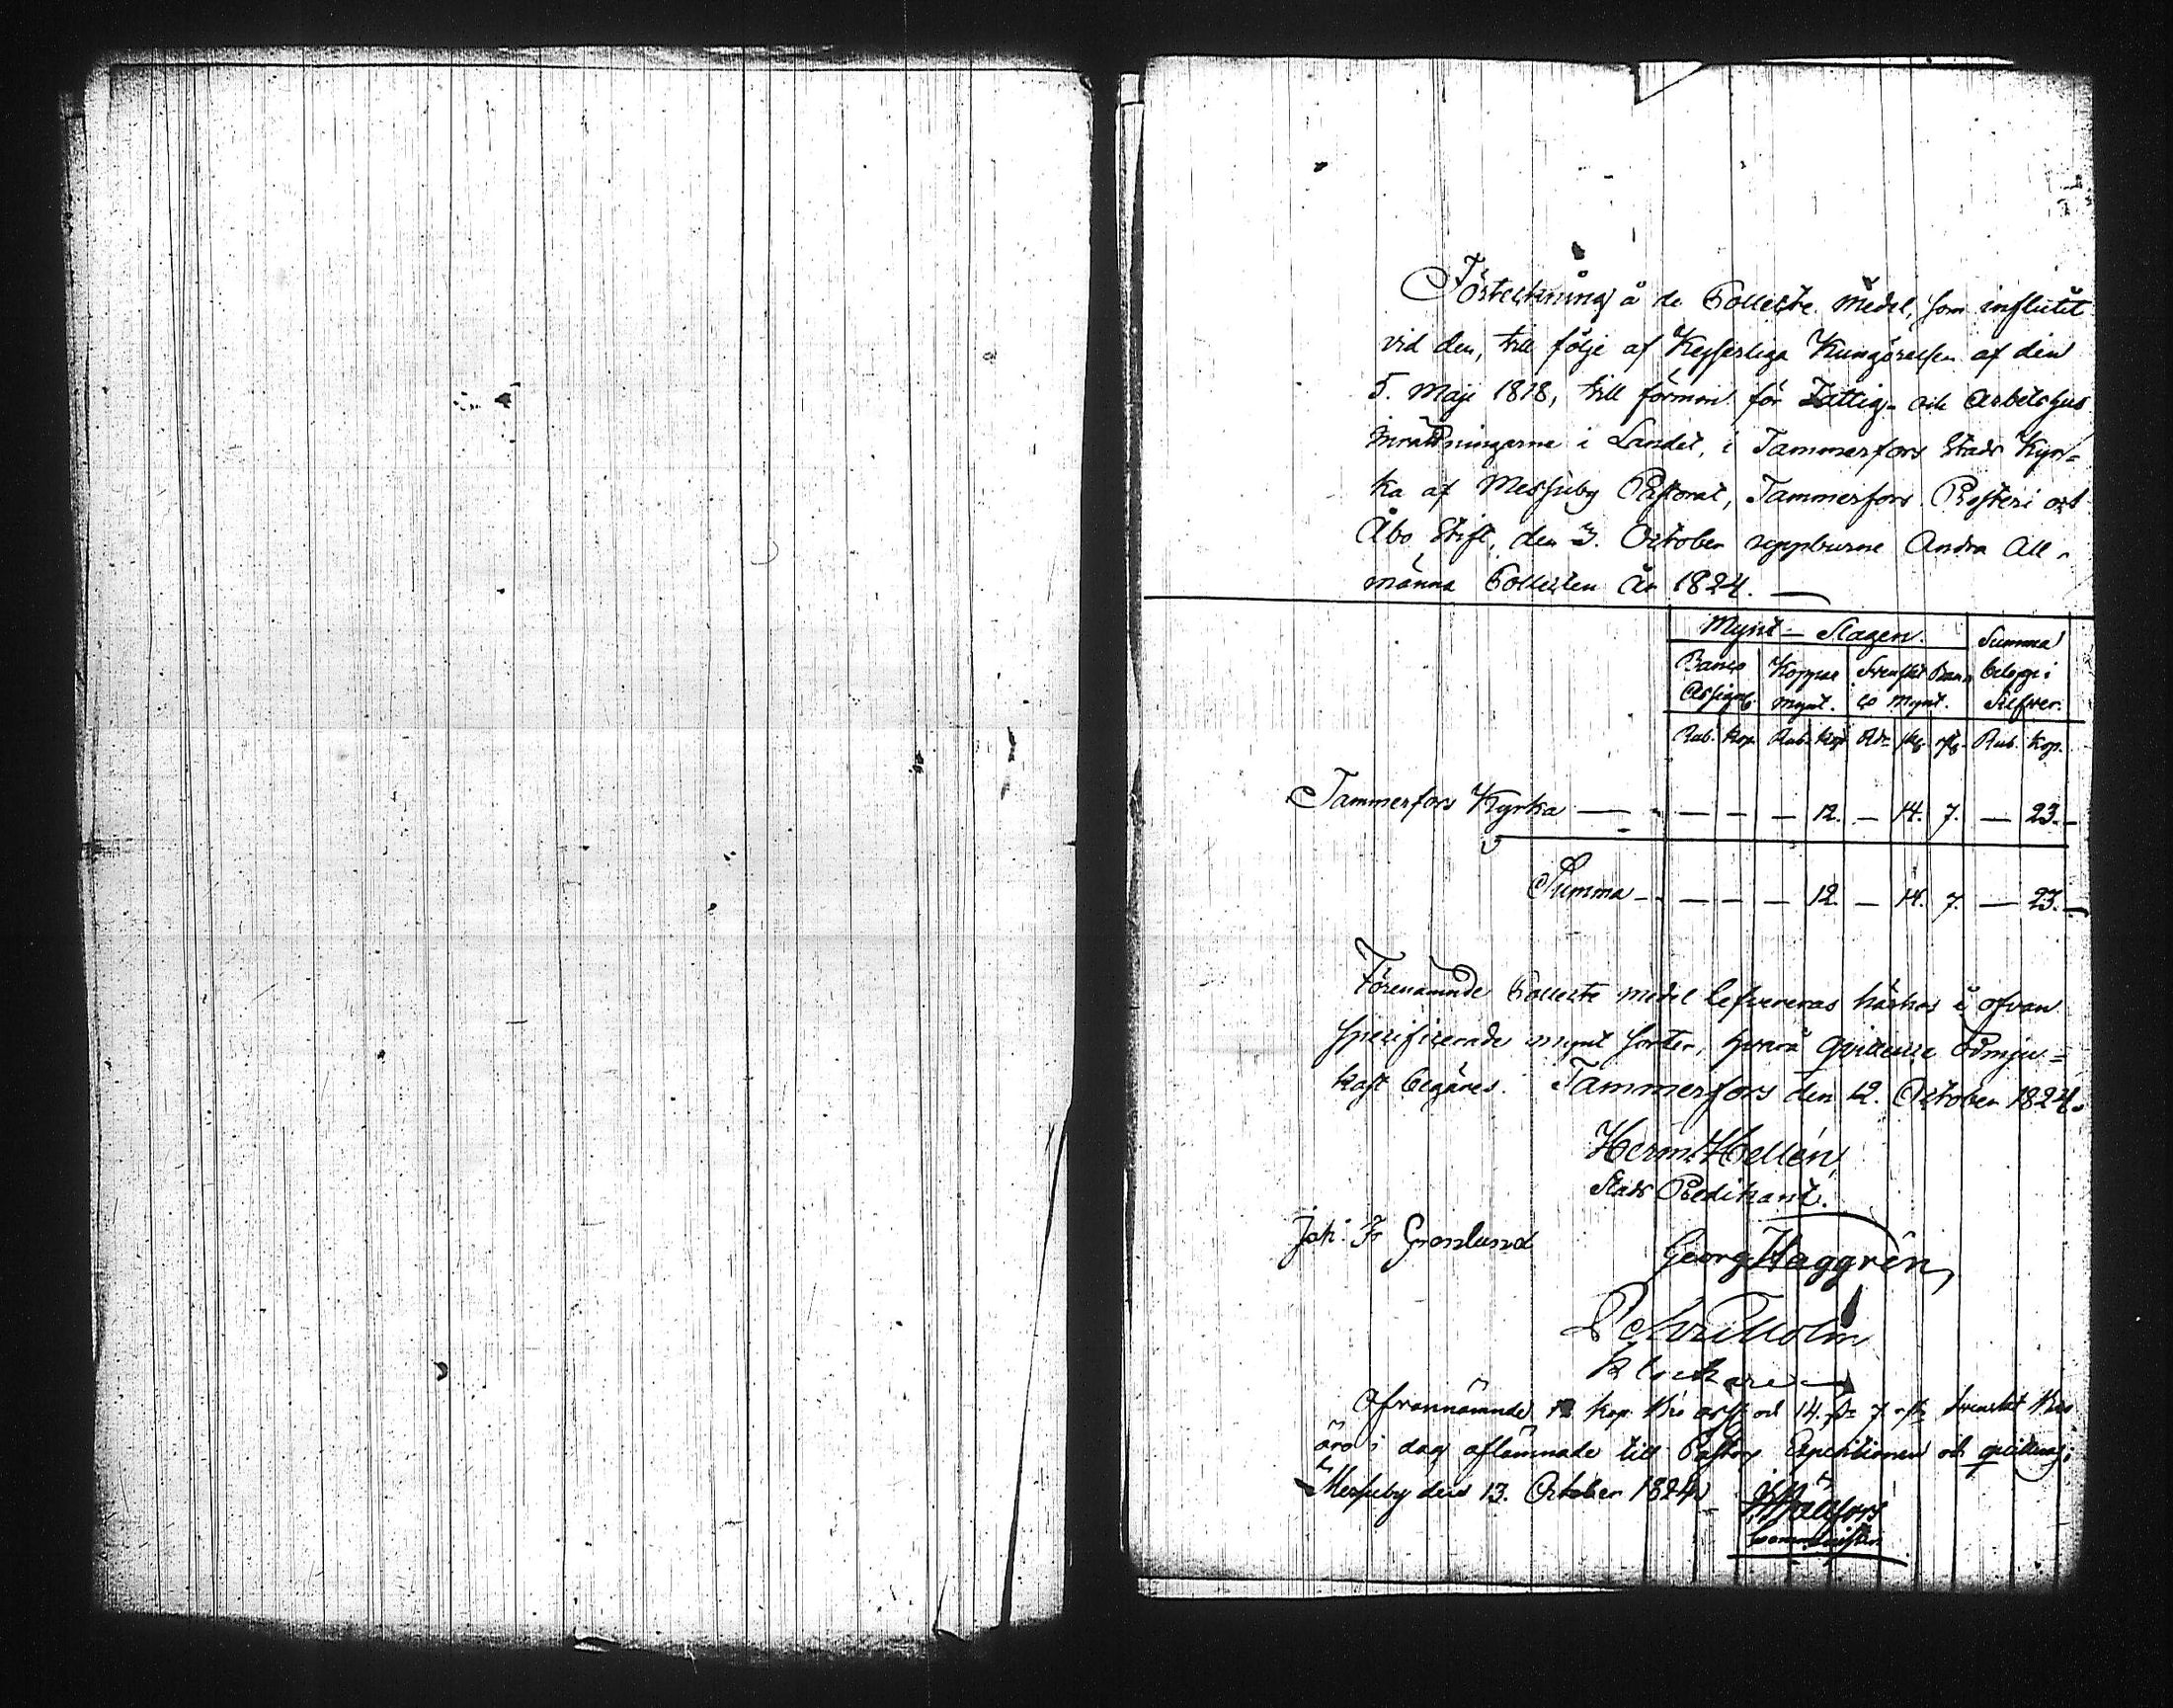 Förteckning å de Collecte medel, som influtit
vid den, till följe af Kejserliga Kungörelsen af den
5. Maji 1818, till förmon för Fattig- och Arbetshus
Inrättningarne i Landet, i Tammerfors Stads Kyr=
ka af Messuby Pastorat, Tammerfors Prosteri och
Åbo Stift, den 3. October uppburne Andra All-
männa Collecten År 1824.
Mynt - Slagen. Summa
Banco Koppar Svenskt Ban- belopp i
Assignat. mynt. co Mynt. Silfver.
Rub. Kop. Rub. Kop. Rdr sk. rst. Rub. Kop.
Tammerfors Kyrka — — — — 12. — 14. 7. — 23. —
Summa — — — — 12. — 14. 7. — 23. —
Förenämnde Collecte medel lefvereras härhos i ofvan
specificerade mynt sorter, hvarå qvittence ödmju=
kast begäres. Tammerfors den 12. October 1824.
Herm. Hellén
Stads Predikant.
Joh. Fr Grönlund
Georg Häggrén
Klockare
Ofvannämnde 12 kop. och 14. sk. 7 rst. Svenskt
äro i dag aflämnade till Pastors Expeditionen och qvitteras;
Messuby den 13. October 1824.